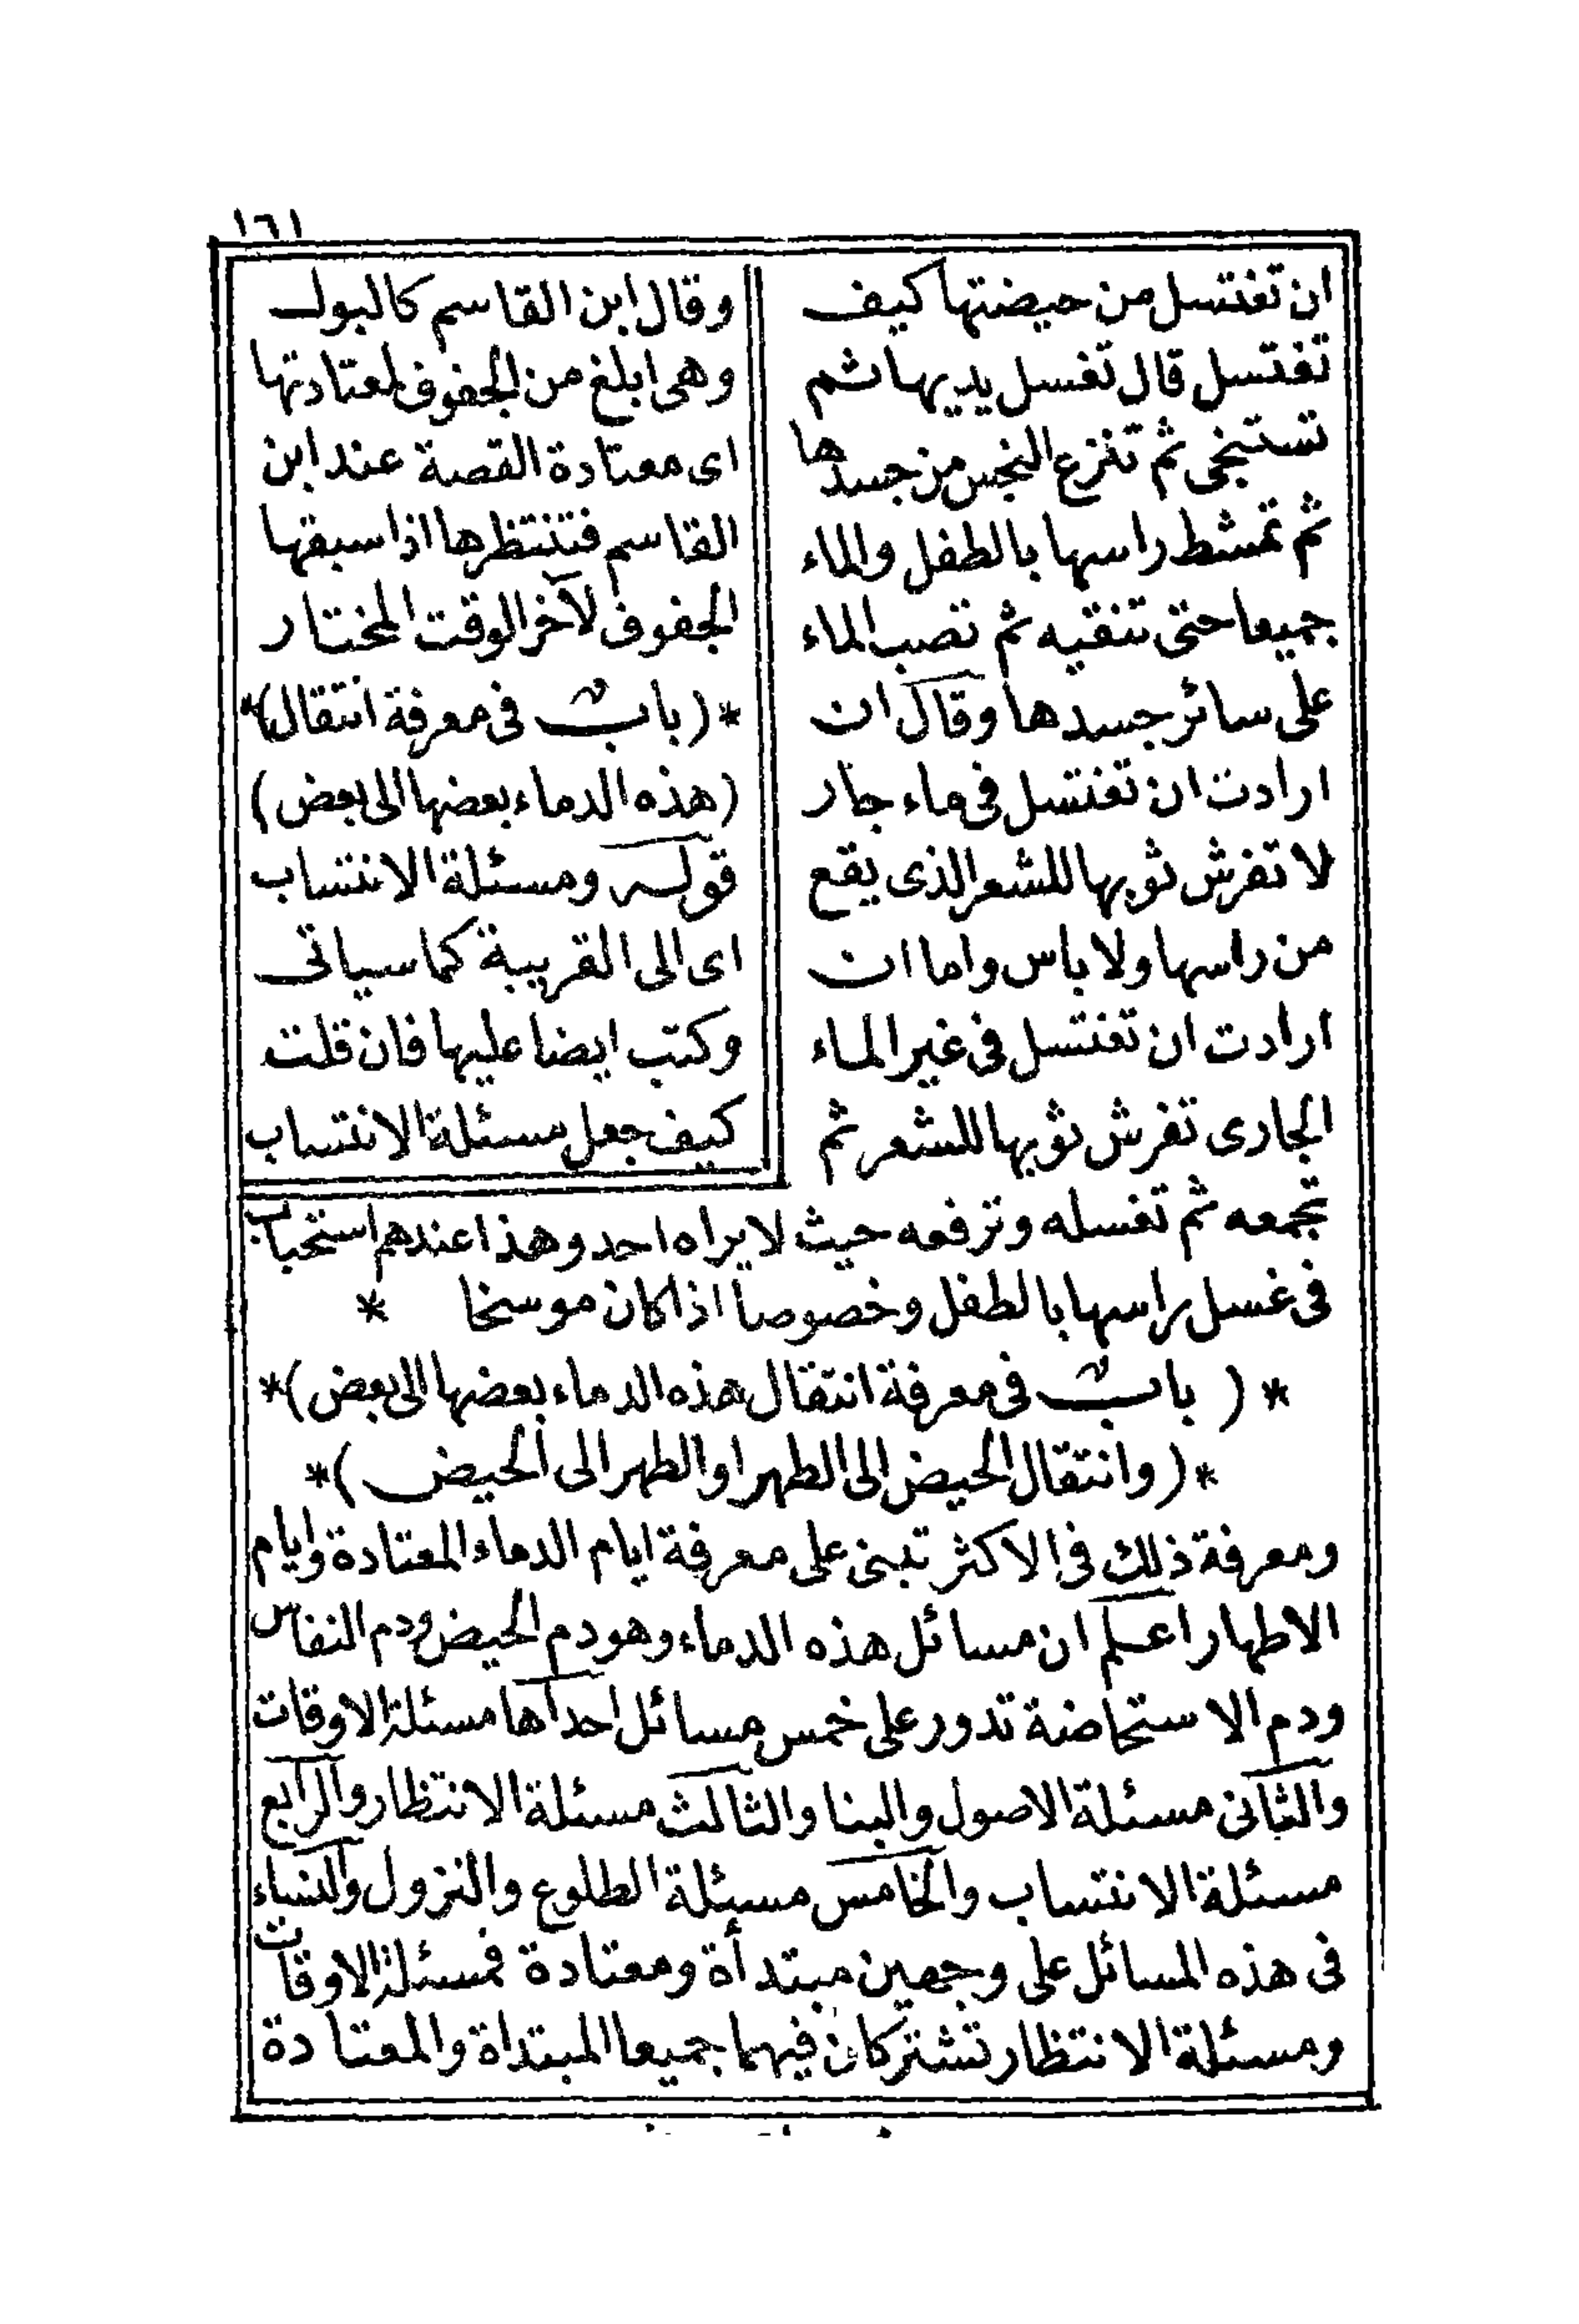 ١٦١
ان تغتسل من حيضتها كيف
تغتسل قال تغسل يديها ثم
تستنجى ثم تنزع النجس من جسدها
ثم تمشط راسها بالطفل والماء
جميعا حتى تنقيه ثم تصب الماء
على سائر جسدها وقال ان
ارادت ان تغتسل فى ماء جار
لا تفرش ثوبها للشعر الذى يقع
من راسها ولا باس واما ان
ارادت ان تغتسل فى غير الماء
الجارى تفرش ثوبها للشعر ثم
وقال ابن القاسم كالبول
وهى ابلغ من الجفوف لمعتادتها
اى معتادة القصة عند ابن
القاسم فتنتظرها اذا سبقها
الجفوف لآخر الوقت المختار
*(باب فى معرفة انتقال)*
(هذه الدماء بعضها الى بعض)
قوله ومسئلة الانتساب
اى الى القريبة كما سياتى
وكتب ايضا عليها فان قلت
كيف جعل مسئلة الانتساب
تجمعه ثم تغسله وترفعه حيث لا يراه احد وهذا عندهم استحباب
فى غسل راسها بالطفل وخصوصا اذا كان موسخا *
*( باب فى معرفة انتقال هذه الدماء بعضها الى بعض)*
*(وانتقال الحيض الى الطهر او الطهر الى الحيض)*
ومعرفة ذلك فى الاكثر تبنى على معرفة ايام الدماء المعتادة وايام
الاطهار اعلم ان مسائل هذه الدماء وهو دم الحيض ودم النفاس
ودم الاستحاضة تدور على خمس مسائل احداها مسئلة الاوقات
والثانى مسئلة الاصول والبنا والثالث مسئلة الانتظار والرابع
مسئلة الانتساب والخامس مسئلة الطلوع والنزول والنساء
فى هذه المسائل على وجهين مبتدأة ومعتادة فمسئلة الاوقات
ومسئلة الانتظار تشتركان فيهما جميعا المبتداة والمعتادة